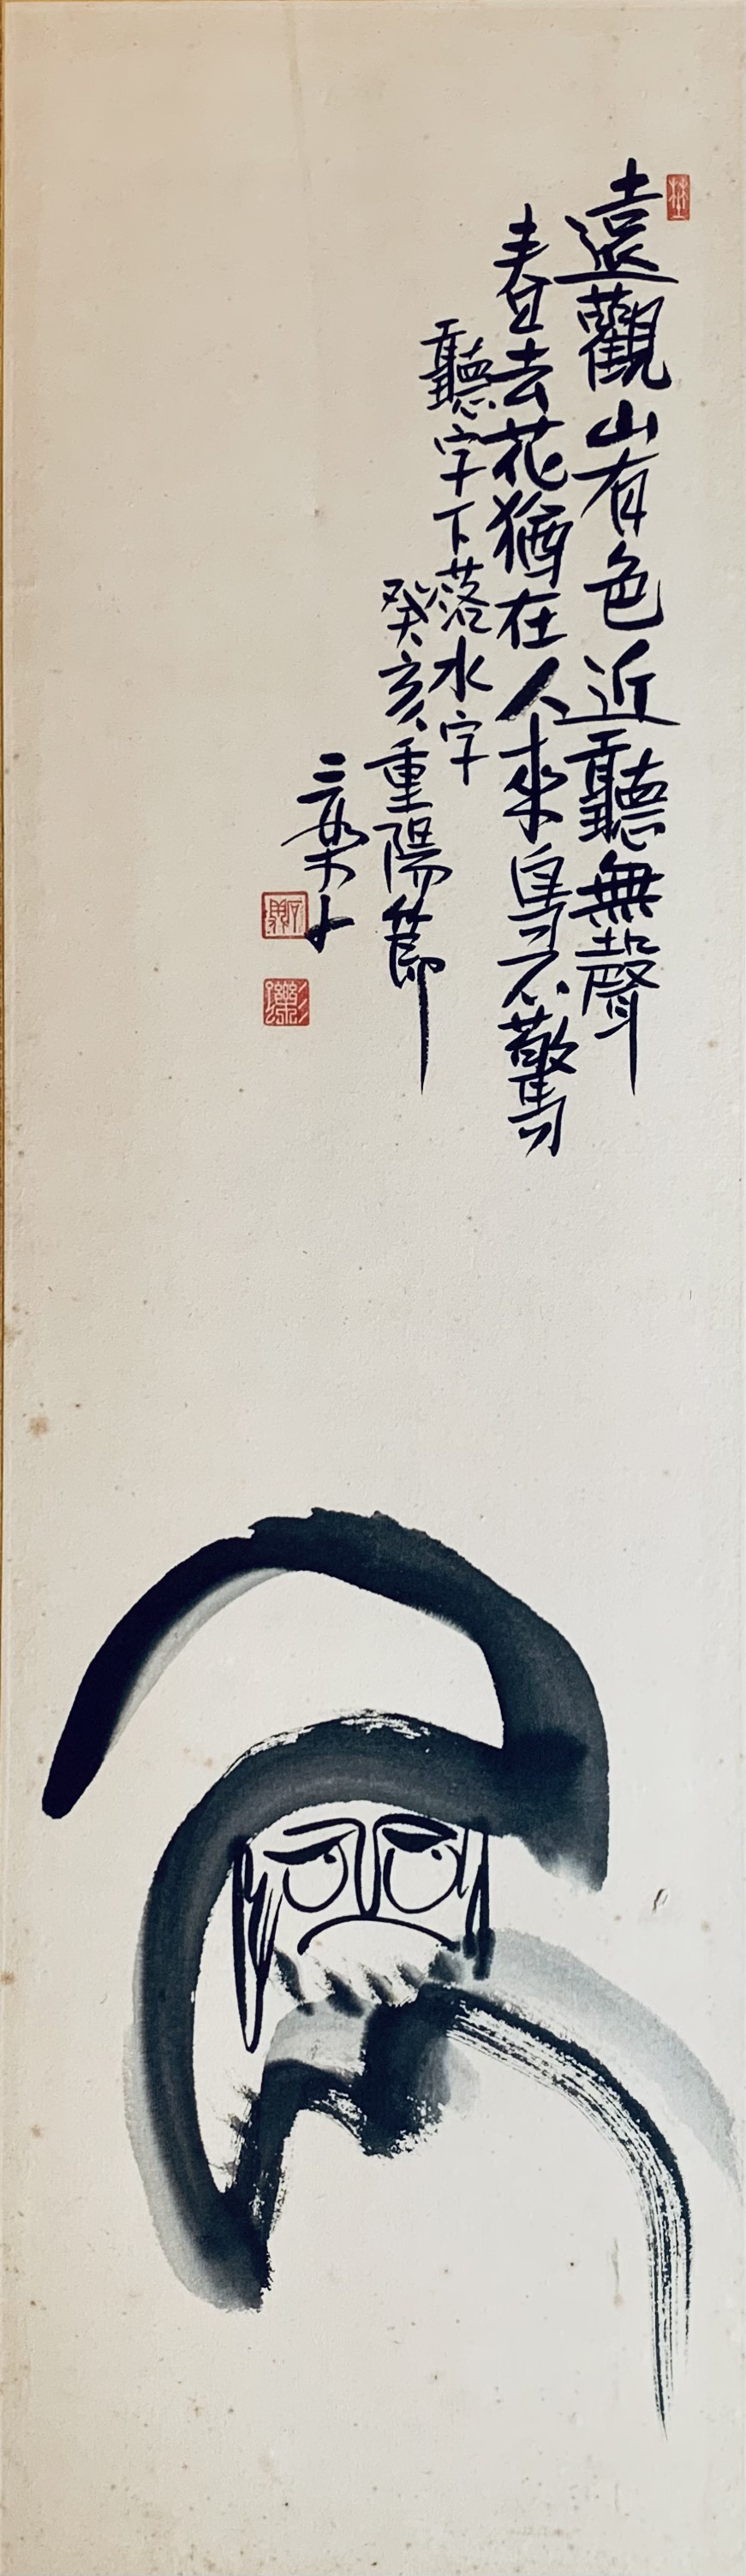 遠觀山有色近聽無聲
春去花猶在人來鳥不驚
聽字下落水字
癸亥重陽節
三樂